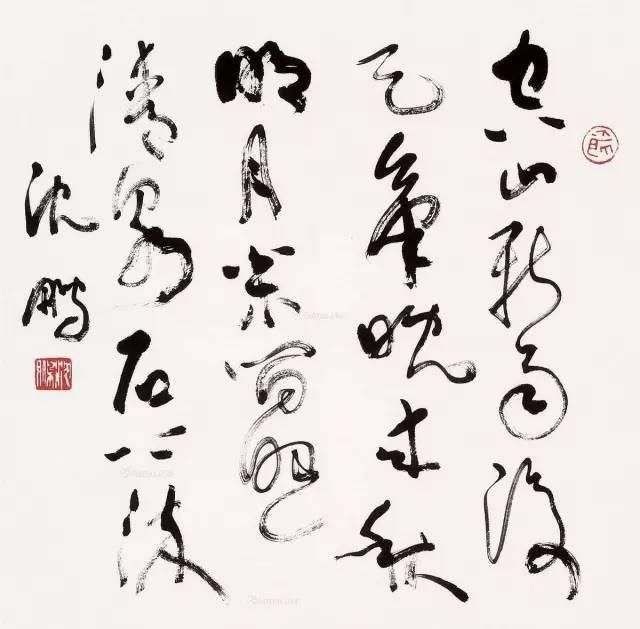 空山新雨後
天氣晚来秋
明月松間照
清泉石上流
沈鵬